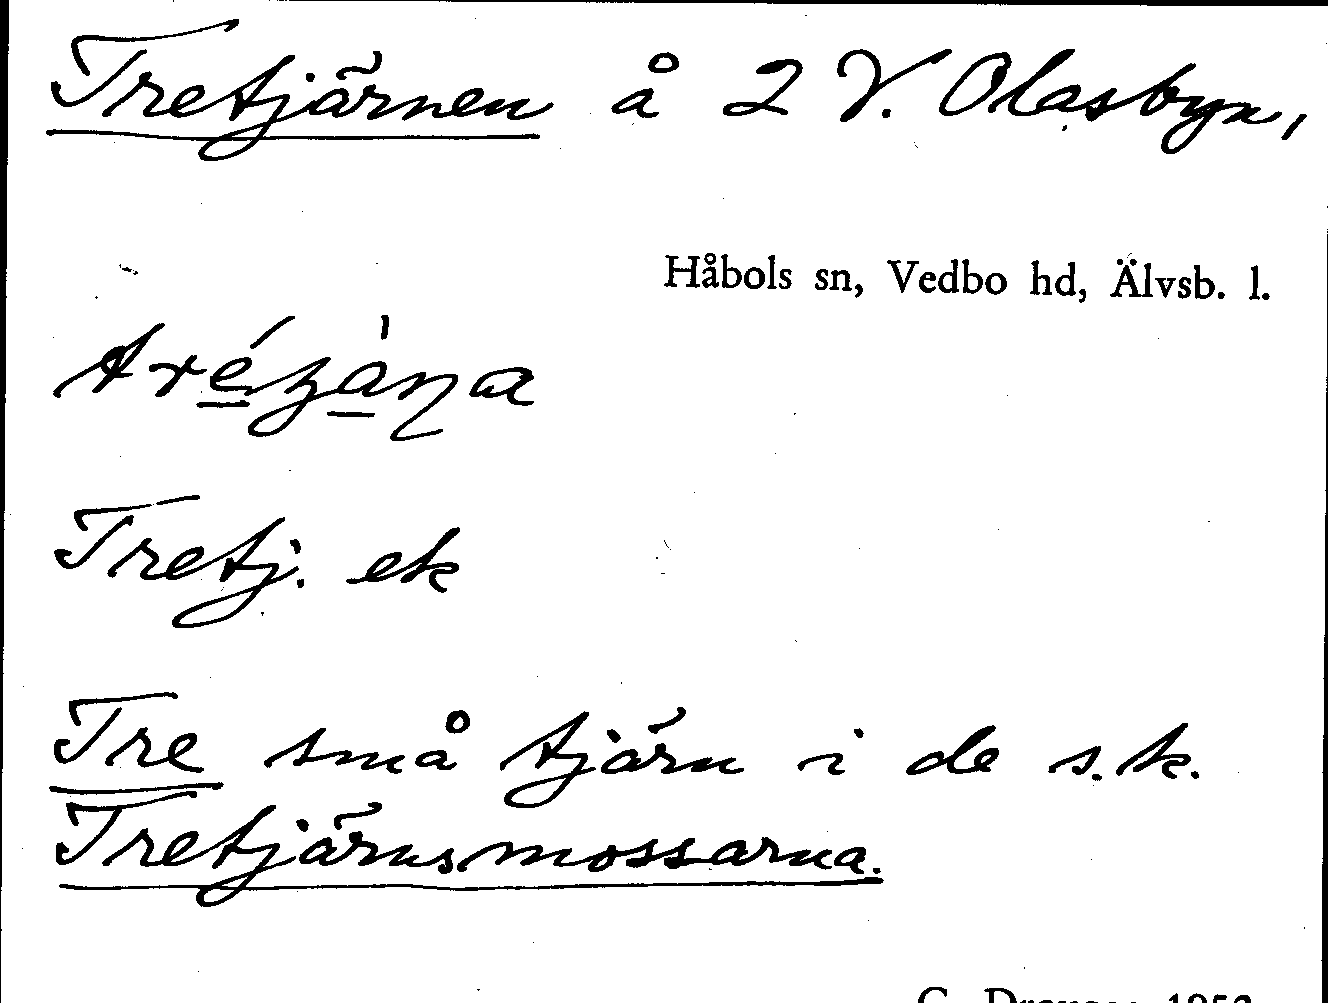 Tretjärnen å 2 V. Olasbyn,
Håbols sn, Vedbo hd, Älvsb. l.
Tretj. ek
Tre små tjärn i de s.k.
Tretjärnsmossarna.